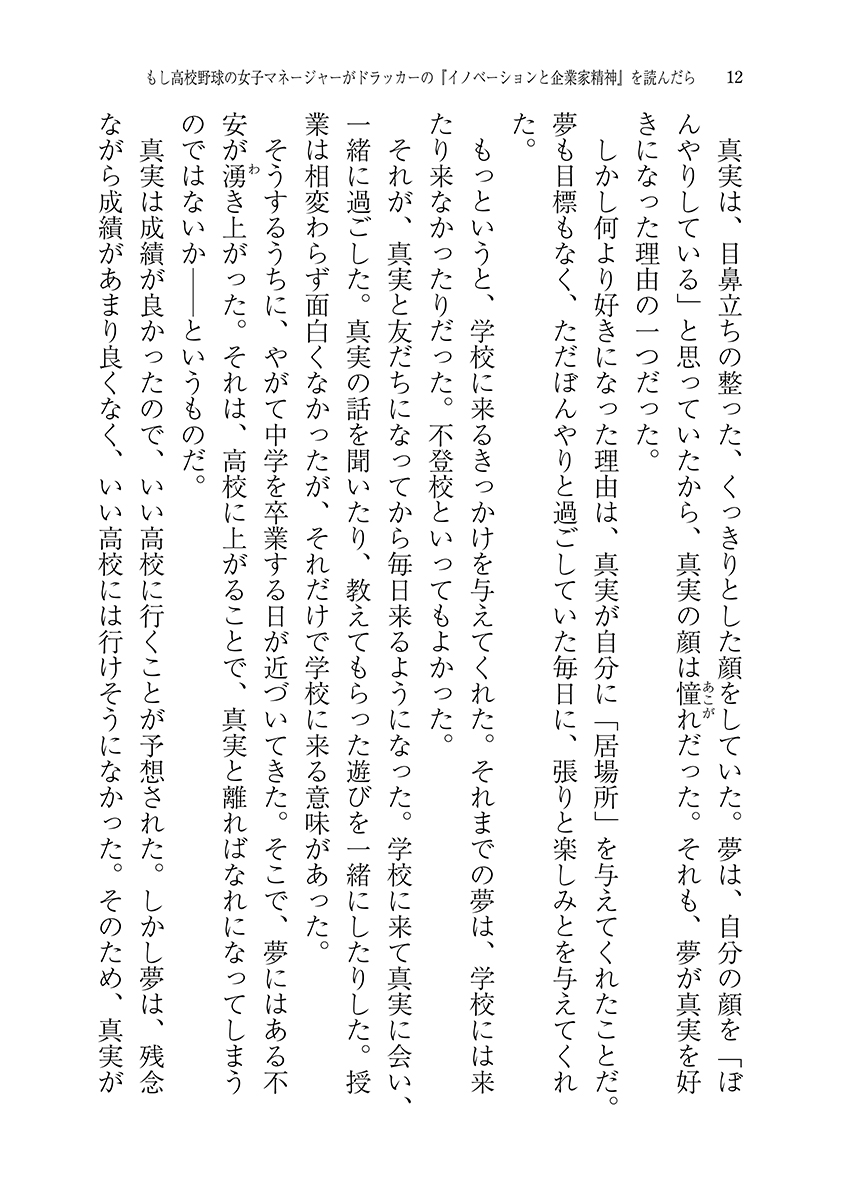 もし高校野球の女子マネージャーがドラッカーの『イノベーションと企業家精神』を読んだら　12
　真実は、目鼻立ちの整った、くっきりとした顔をしていた。夢は、自分の顔を「ぼ
んやりしている」と思っていたから、真実の顔は憧れだった。それも、夢が真実を好
あこが
きになった理由の一つだった。
　しかし何より好きになった理由は、真実が自分に「居場所」を与えてくれたことだ。
夢も目標もなく、ただぼんやりと過ごしていた毎日に、張りと楽しみとを与えてくれ
た。
　もっというと、学校に来るきっかけを与えてくれた。それまでの夢は、学校には来
たり来なかったりだった。不登校といってもよかった。
　それが、真実と友だちになってから毎日来るようになった。学校に来て真実に会い、
一緒に過ごした。真実の話を聞いたり、教えてもらった遊びを一緒にしたりした。授
業は相変わらず面白くなかったが、それだけで学校に来る意味があった。
　そうするうちに、やがて中学を卒業する日が近づいてきた。そこで、夢にはある不
安が湧き上がった。それは、高校に上がることで、真実と離ればなれになってしまう
わ
のではないか――というものだ。
　真実は成績が良かったので、いい高校に行くことが予想された。しかし夢は、残念
ながら成績があまり良くなく、いい高校には行けそうになかった。そのため、真実が